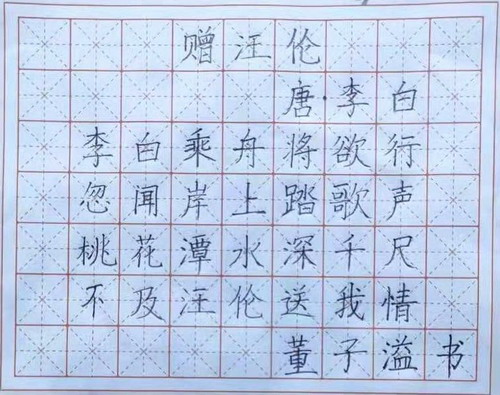 赠汪伦
唐·李白
李白乘舟将欲行
忽闻岸上踏歌声
桃花潭水深千尺
不及汪伦送我情
董子溢书